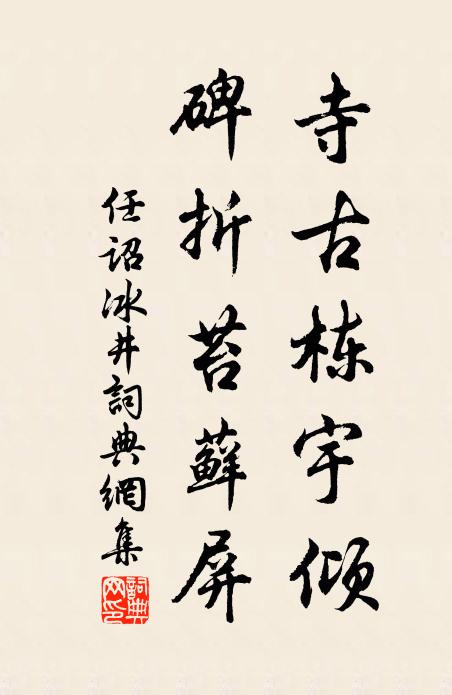 寺古栋宇倾
碑折苔藓屏
任诏冰井詞典網集
詞典網印